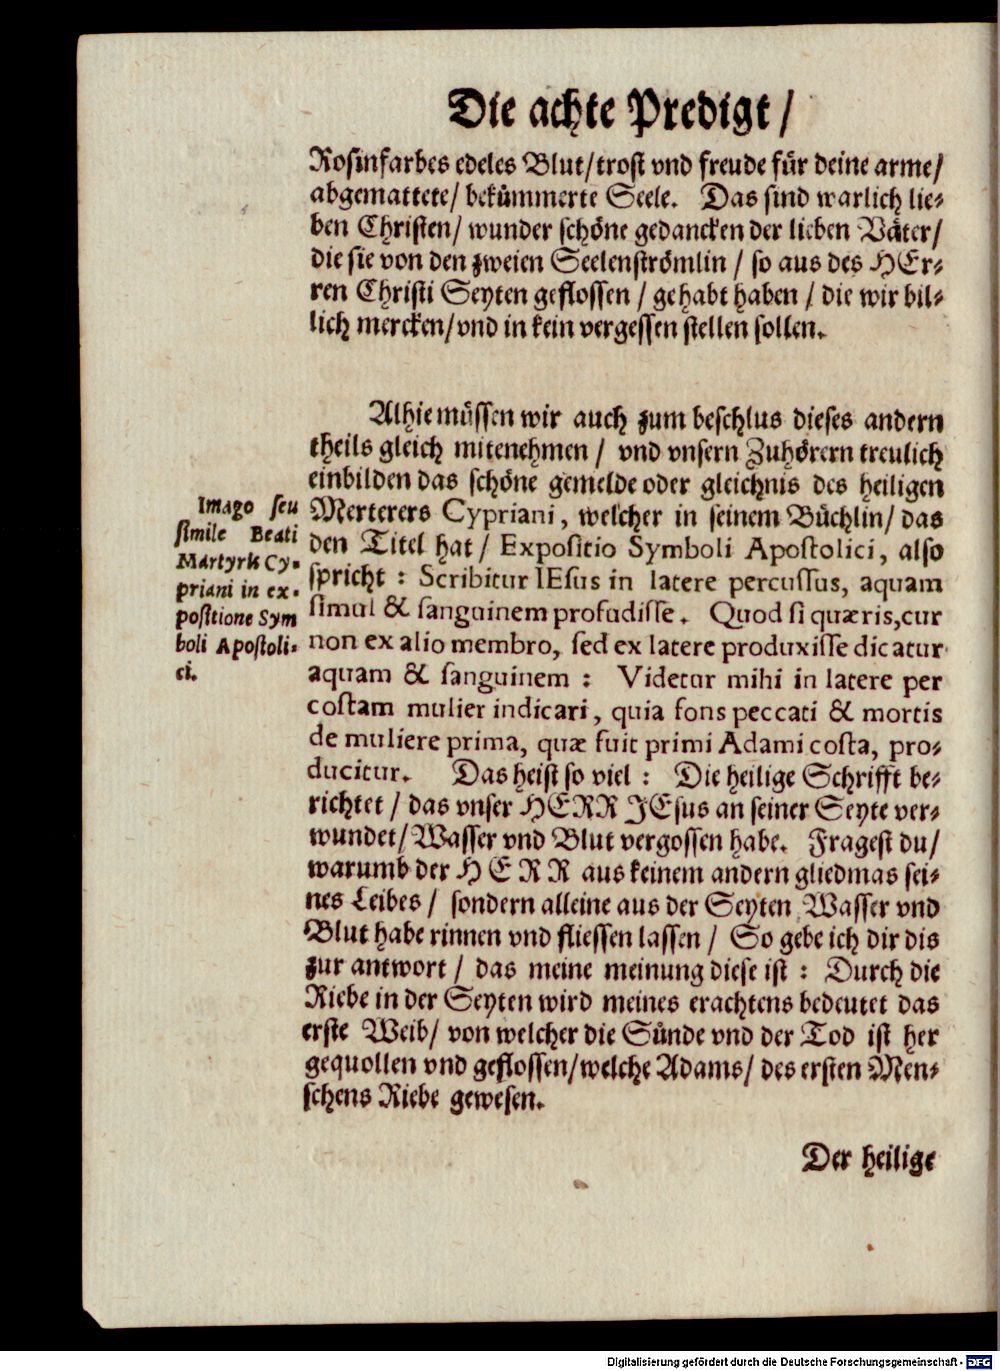 Die achte Predigt /
Rosinfarbes edeles Blut/trost vnd freude fuͤr deine arme/
abgemattete/ bekuͤmmerte Seele. Das sind warlich lie-
ben Christen/ wunder schoͤne gedancken der lieben Vaͤter/
die sie von den zweien Seelenstroͤmlin / so aus des HEr-
ren Christi Seyten geflossen / gehabt haben / die wir bil-
lich mercken/vnd in kein vergessen stellen sollen.
Alhie muͤssen wir auch zum beschlus dieses andern
theils gleich mitenehmen / vnd vnsern Zuhoͤrern treulich
einbilden das schoͤne gemelde oder gleichnis des heiligen
Merterers Cypriani, welcher in seinem Buͤchlin/ das
den Titel hat / Expositio Symboli Apostolici, also
spricht : Scribitur IEsus in latere percussus, aquam
simul & sanguinem profudisse. Quod si quæris,cur
non ex alio membro, sed ex latere produxisse dicatur
aquam & sanguinem : Videtur mihi in latere per
costam mulier indicari, quia fons peccati & mortis
de muliere prima, quæ fuit primi Adami costa, pro-
ducitur. Das heist so viel : Die heilige Schrifft be-
richtet / das vnser HERR JEsus an seiner Seyte ver-
wundet/ Wasser vnd Blut vergossen habe. Fragest du/
warumb der HERR aus keinem andern gliedmas sei-
nes Leibes / sondern alleine aus der Seyten Wasser vnd
Blut habe rinnen vnd fliessen lassen / So gebe ich dir dis
zur antwort / das meine meinung diese ist : Durch die
Riebe in der Seyten wird meines erachtens bedeutet das
erste Weib/ von welcher die Suͤnde vnd der Tod ist her
gequollen vnd geflossen/welche Adams/ des ersten Men-
schens Riebe gewesen.
Imago seu
simile Beati
Martyris Cy-
priani in ex-
positione Sym
boli Apostoli-
ci.
Der heilige
Digitalisierung gefördert durch die Deutsche Forschungsgemeinschaft - DFG